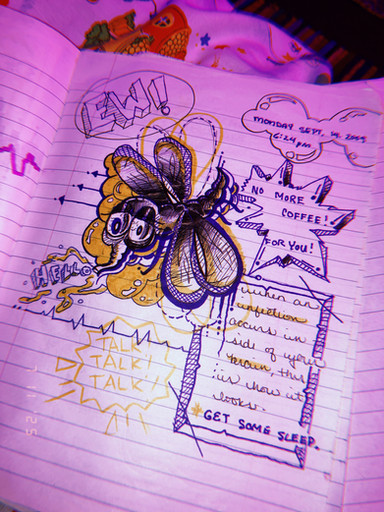 EW!
MONDAY SEPT. 14, 2009
6:24 PM
NO MORE
COFFEE!
FOR YOU!
HELLO
TALK!
TALK!
TALK!
when an
infection
occurs in
side of your
brain this
is how it
looks.
*GET SOME SLEEP.
7 11 '25